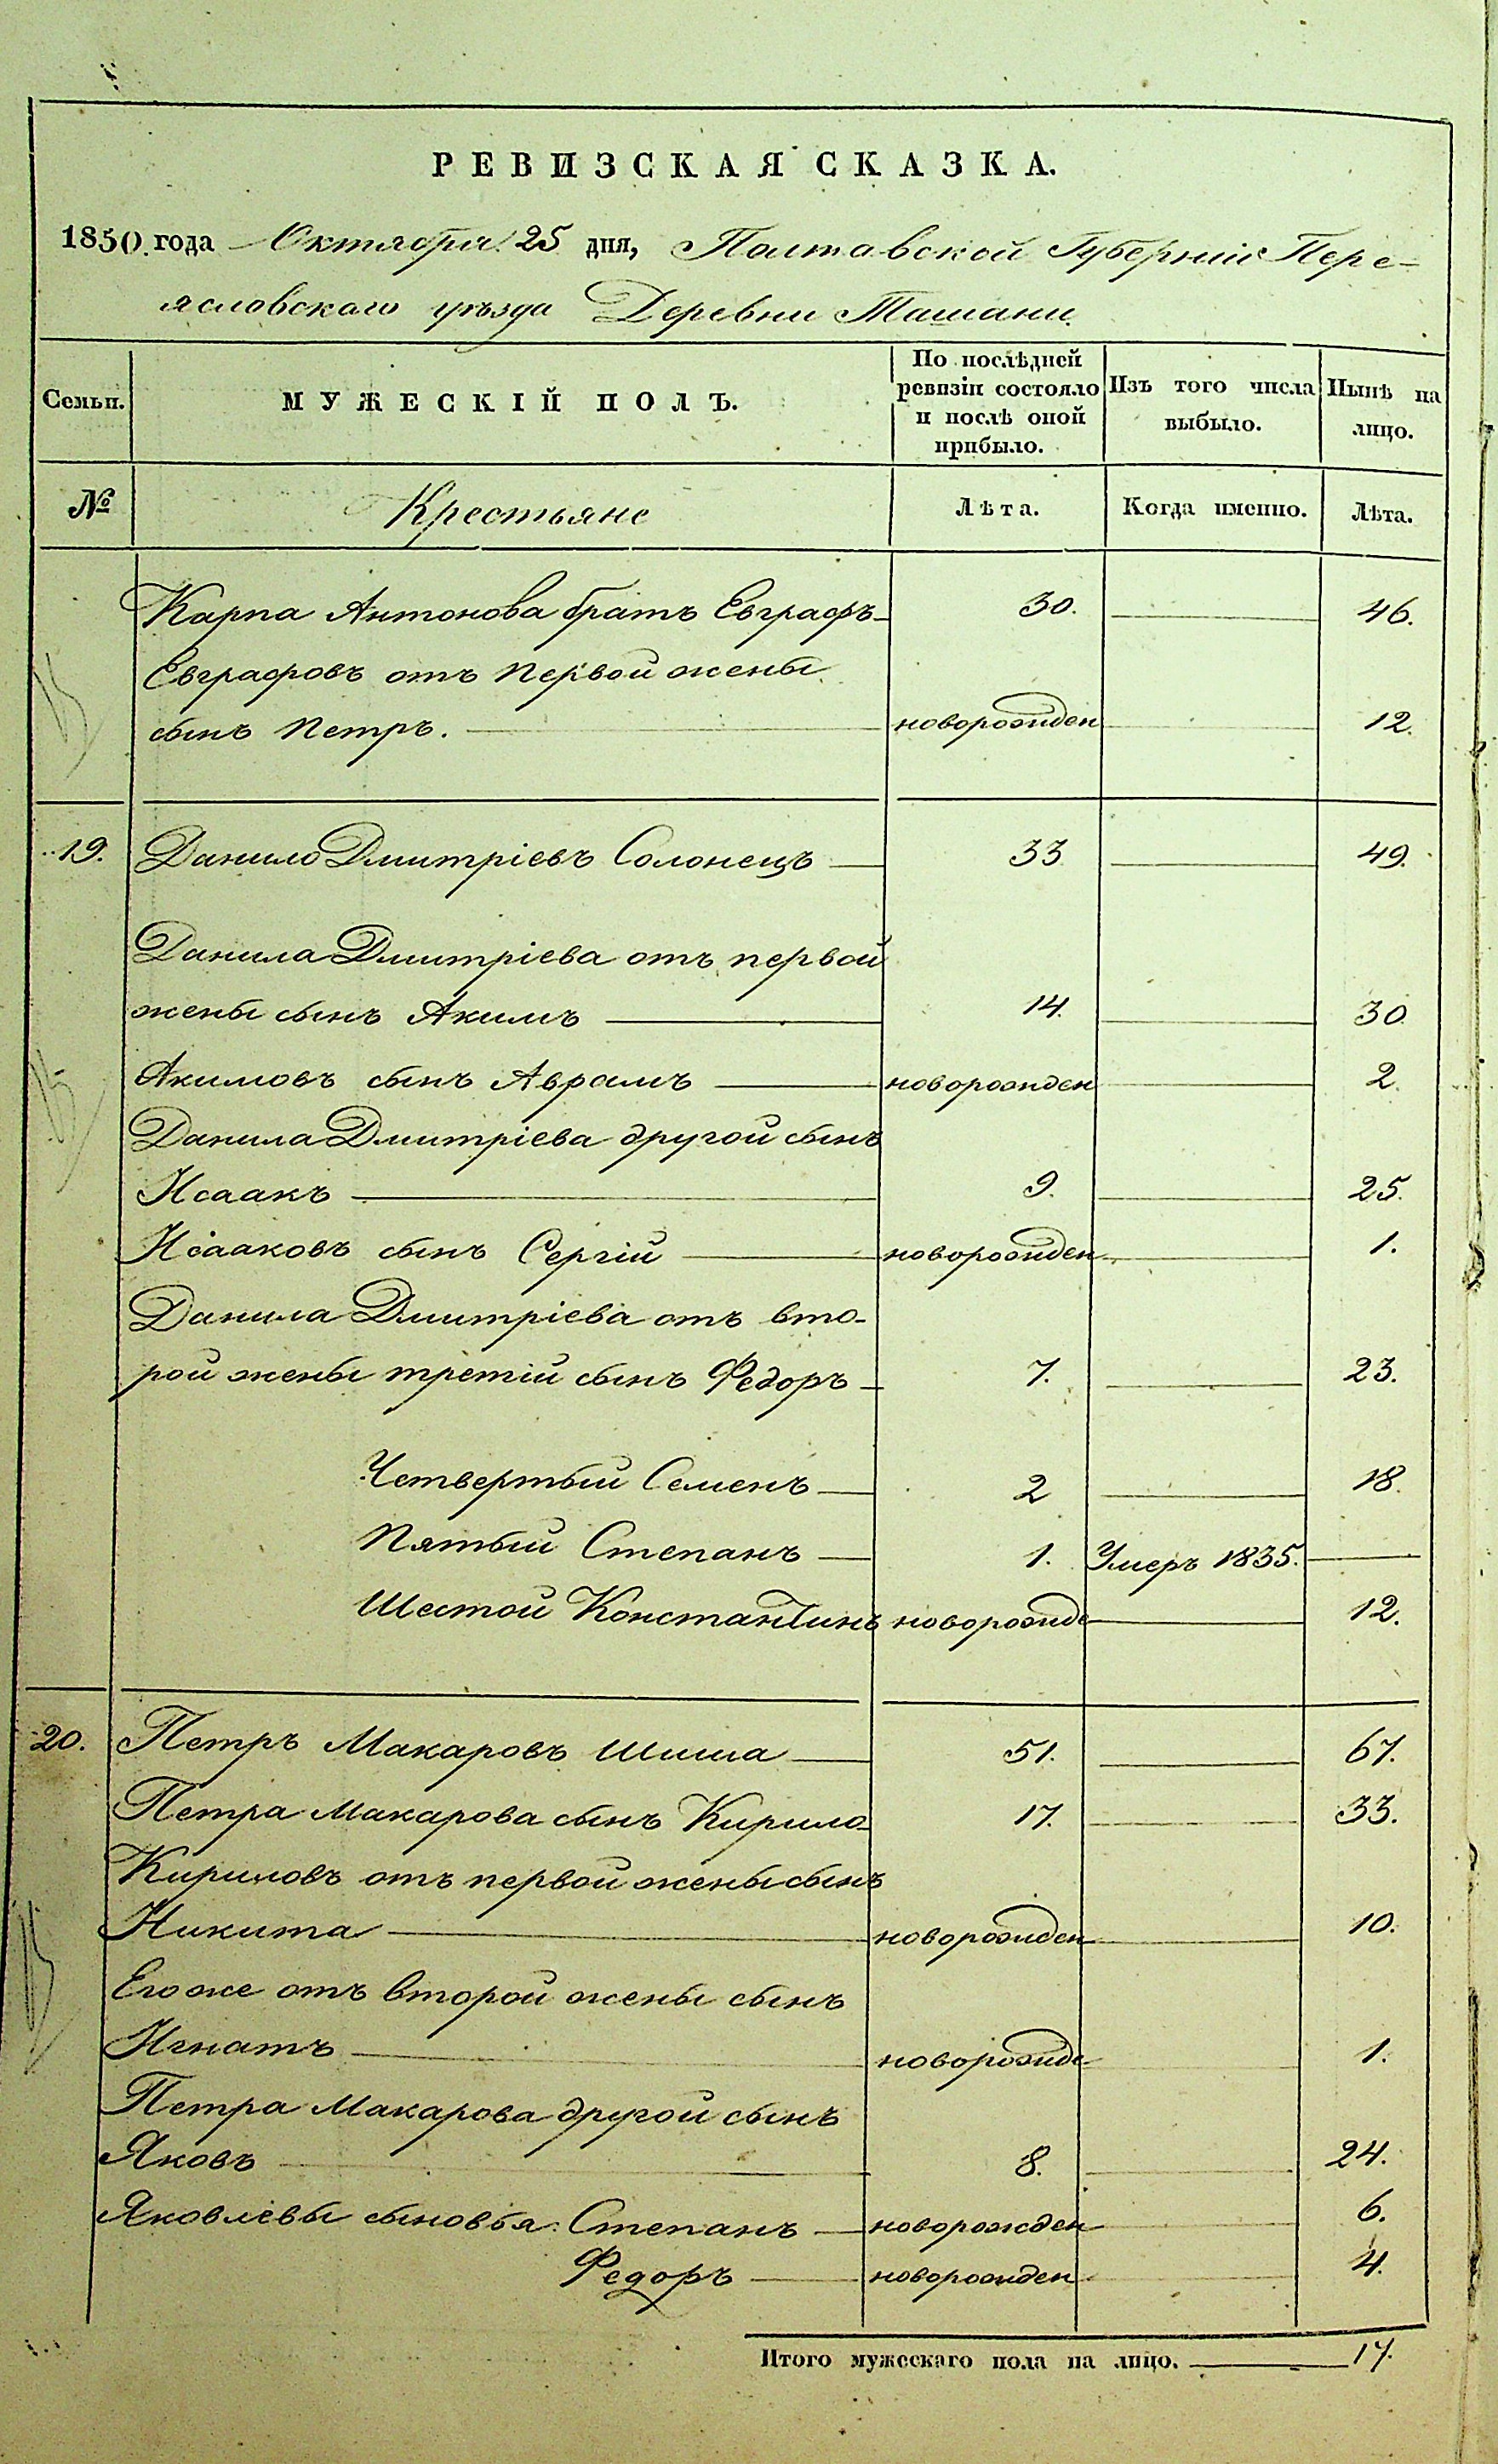 РЕВИЗСКАЯ СКАЗКА.
1850. года Октября 25 дня, Полтавской Губерніи Пере-
ясловского уѣзда Деревни Ташани
Семьи. МУЖЕСКІЙ ПОЛЪ. По послѣдней ревизіи состояло и послѣ оной прибыло. Изъ того числа выбыло. Нынѣ на лицо.
№ Крестьяне Лѣта. Когда именно. Лѣта.
Карпа Антонова братъ Евграфъ 30. 46.
Евграфовъ отъ первой жены
сынъ Петръ. новорожден 12.
19. Данило Дмитріевъ Солонецъ 33 49.
Данила Дмитріева отъ первой
жены сынъ Акимъ 14. 30
Акимовъ сынъ Аврамъ новорожден 2
Данила Дмитріева другой сынъ
Исаакъ 9. 25.
Исааковъ сынъ Сергій новорожден 1.
Данила Дмитріева отъ вто-
рой жены третій сынъ Федоръ 7. 23.
Четвертый Семенъ 2 18.
Пятый Степанъ 1. Умеръ 1835.
Шестой Константинъ новорожде 12.
20. Петръ Макаровъ Шиша 51. 67.
Петра Макарова сынъ Кирило 17. 33.
Кириловъ отъ первой жены сынъ
Никита новорожден 10.
Его же отъ второй жены сынъ
Игнатъ новорожде 1.
Петра Макарова другой сынъ
Яковъ 8. 24.
Яковлевы сыновья: Степанъ новорожден 6.
Федоръ новорожден 4.
Итого мужескаго пола на лицо. 17.